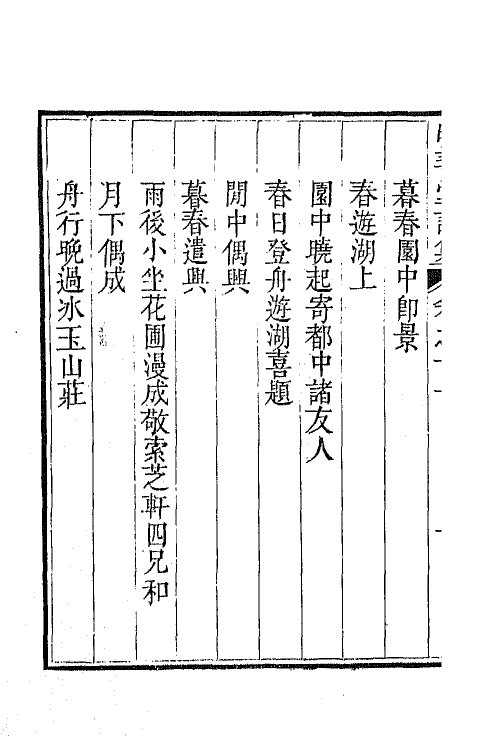 暮春園中即景
春遊湖上
園中曉起寄都中諸友人
春日登舟遊湖喜題
閒中偶興
暮春遣興
雨後小坐花圃漫成敬索芝軒四兄和
月下偶成
舟行晚過氷玉山莊